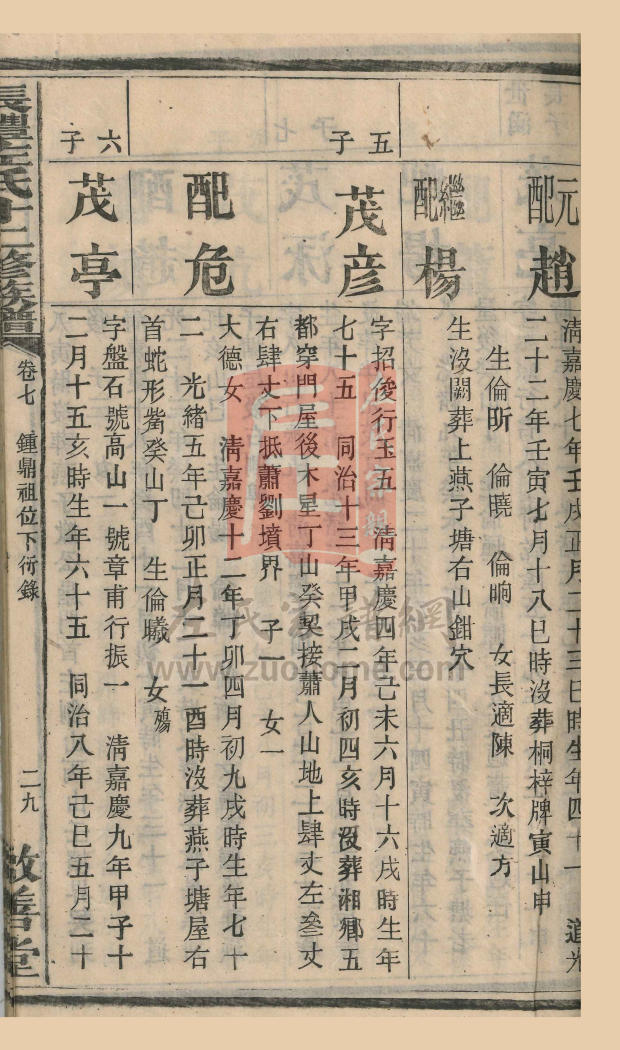 元配趙
清嘉慶七年壬戌正月二十三日時生年四十一 道光
二十二年壬寅七月十八巳時沒葬桐梓牌寅山申
生倫昕 倫曉 倫晌 女長適陳 次適方
繼配楊
生沒闕葬上燕子塘右山鉗穴
五子
茂彦
字招俊行玉五 清嘉慶四年己未六月十六戌時生年
七十五 同治十三年甲戌二月初四亥時沒葬湘鄉五
都穿門屋後木星丁山癸契接蕭人山地上肆丈左叄丈
右肆丈下抵蕭劉墳界 子一 女一
配危
大德女 清嘉慶十二年丁卯四月初九戌時生年七十
二 光緒五年己卯正月二十一酉時沒葬燕子塘屋右
首蛇形嘴癸山丁 生倫曦 女殤
六子
茂亭
字盤石號高山一號章甫行振一 清嘉慶九年甲子十
二月十五亥時生年六十五 同治八年己巳五月二十
長澧左氏十二修族譜
卷七 鍾鼎祖位下衍錄
二九
敦善堂
左氏家譜網
www.zuohome.com